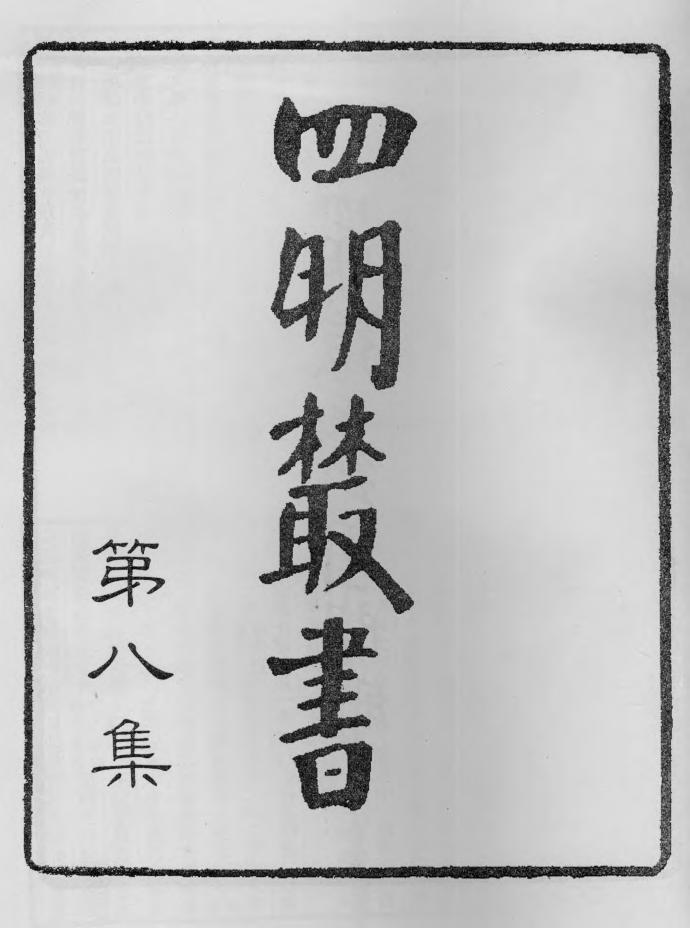 四明叢書
第八集